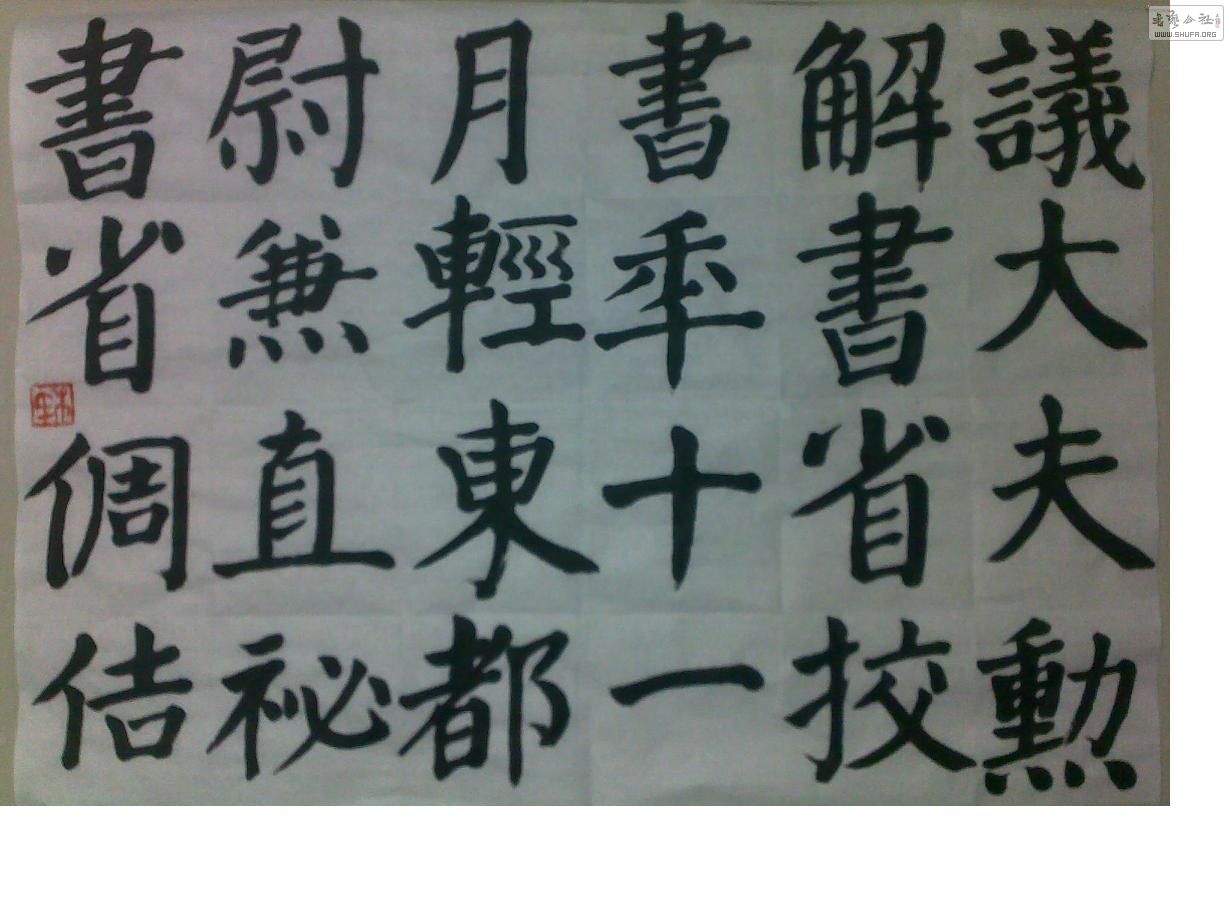 議大夫勲
解書省挍
書年十一
月輕東都
尉兼直祕
書省倜佶
WWW.SHUFA.ORG